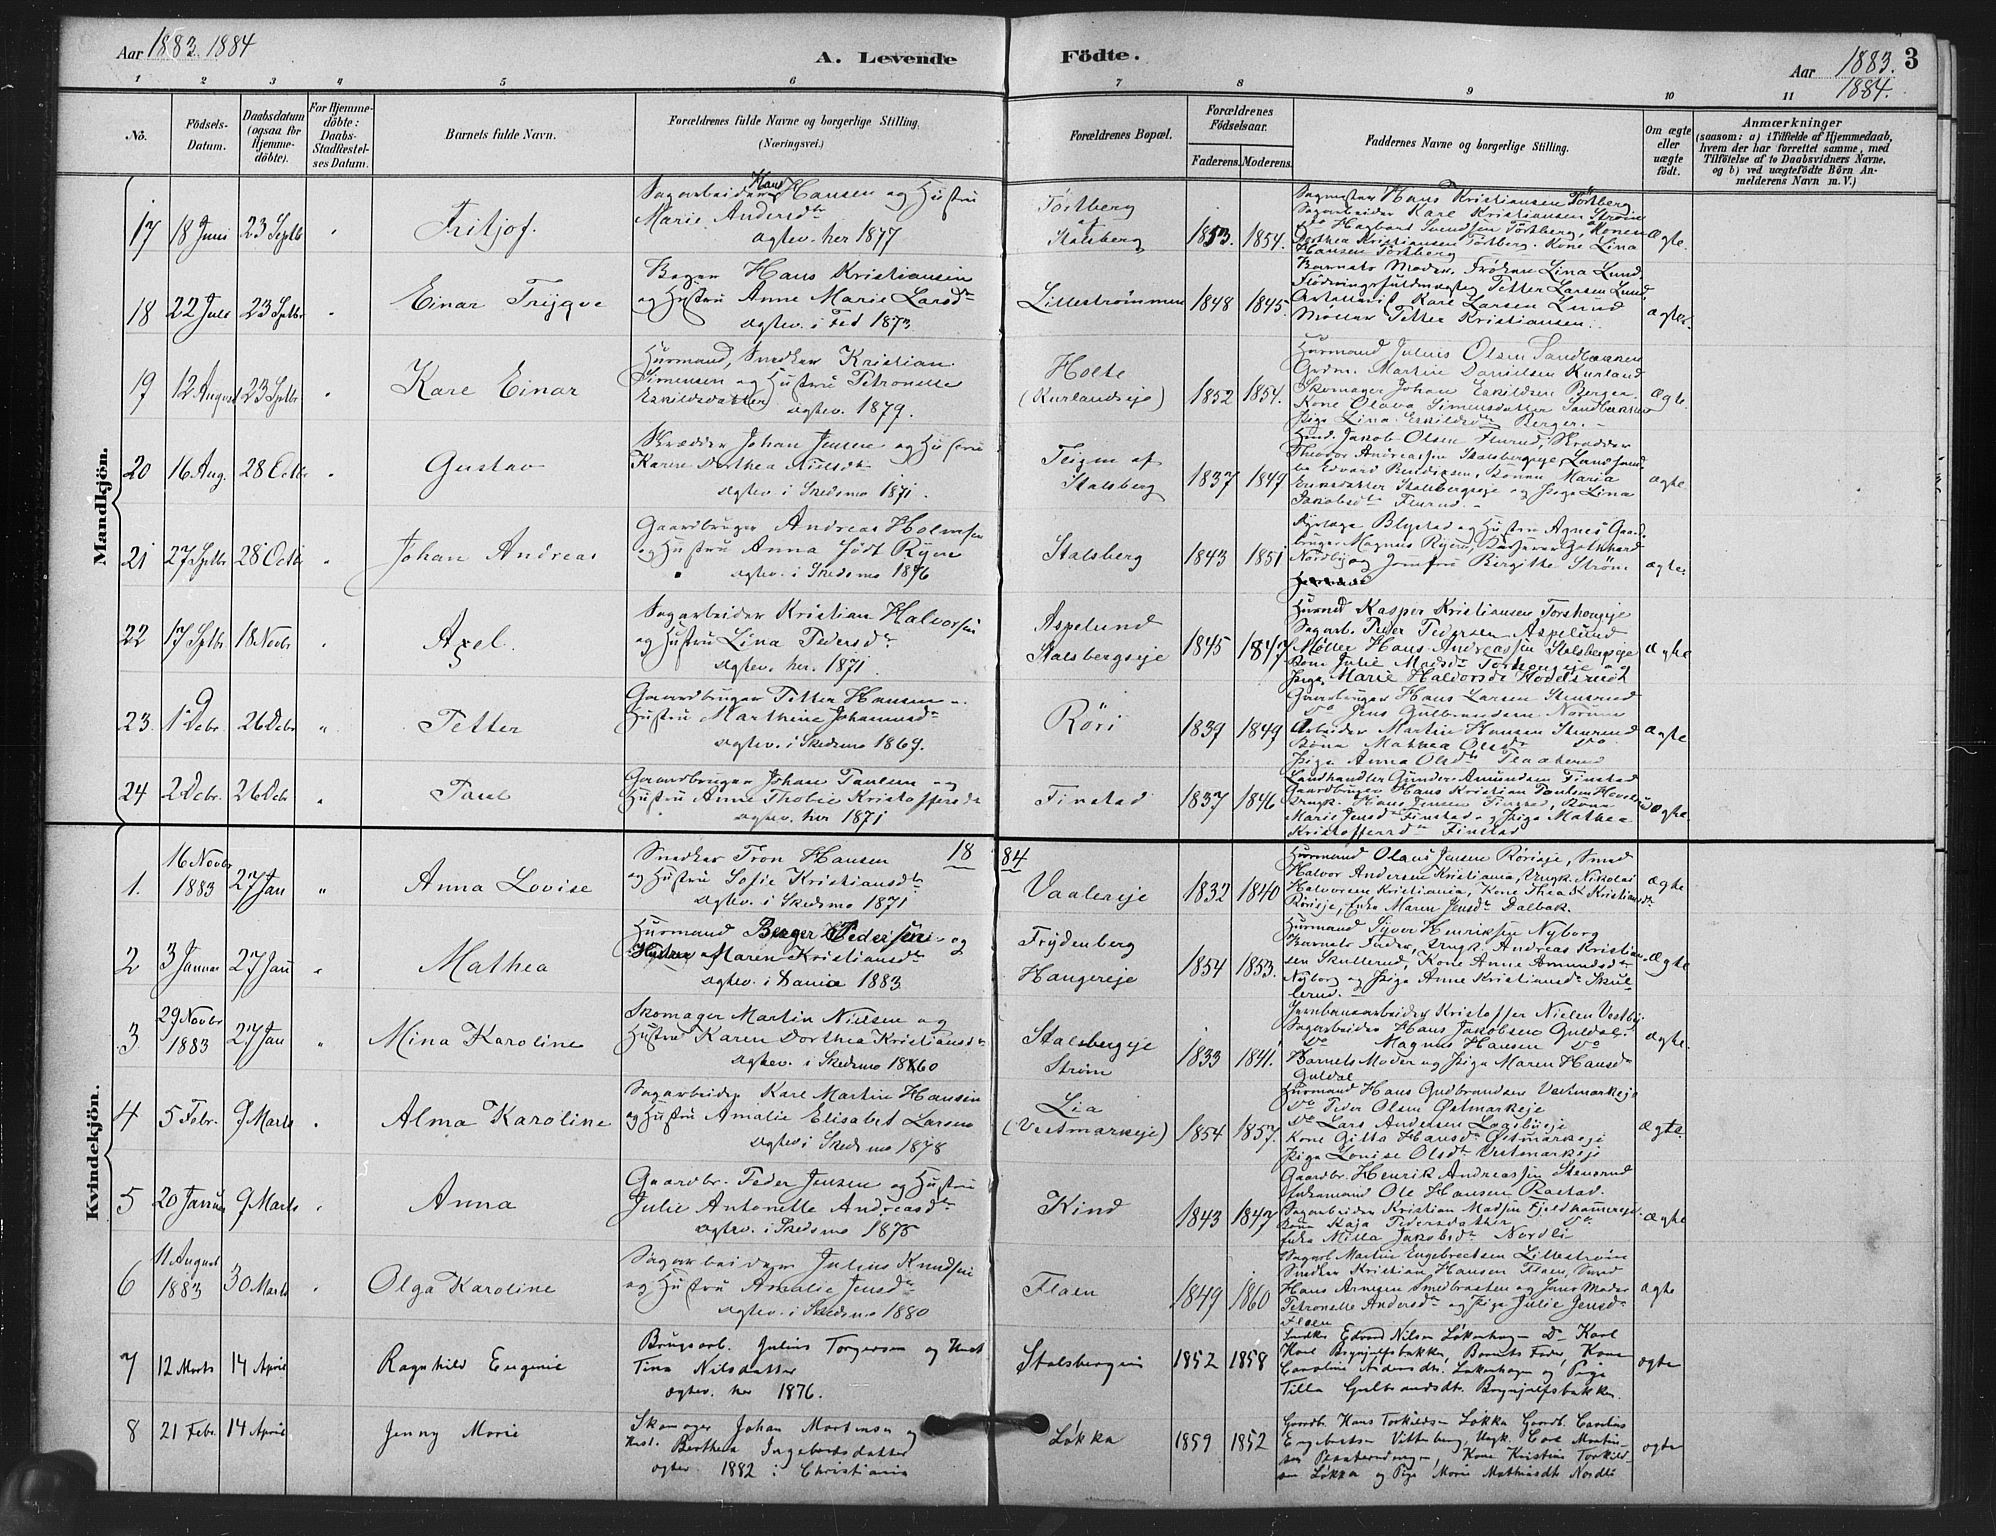 Aar 1883. 1884
A. Levende Födte.
Aar 1883. 3
1884.
1 2 3 4 5 6 7 8 9 10 11
No.
Födsels-
Datum.
Daabsdatum
(ogsaa for
Hjemme-
döbte).
For Hjemme-
döbte:
Daabs-
Stadfæstel-
ses Datum.
Barnets fulde Navn.
Forældrenes fulde Navne og borgerlige Stilling.
(Næringsvei.)
Forældrenes Bopæl.
Forældrenes
Födselsaar.
Faderens. Moderens.
Faddernes Navne og borgerlige Stilling.
Om ægte
eller
uægte
födt.
Anmærkninger
(saasom: a) i Tilfælde af Hjemmedaab,
hvem der har forrettet samme, med
Tilföielse af to Daabsvidners Navne,
og b) ved uægtefödte Börn An-
melderens Navn m. V.)
Mandkjön.
17 18 Juni 23 Septb " Fritjof.
Sagarbeider Hans Hansen og Hustru
Marie Andersdtr
ægtev. her 1877
Törtberg
af
Stalsberg
1853. 1854.
Sagmester Hans Kristiansen Törtberg
Sagarbeider Karl Kristiansen Ström
do Hagbart Svendsen Törtberg, Konen
Dorthea Kristiansen Törtberg. Kone Lina
Hansen Törtberg
ægte.
18 22 Juli 23 Sptbr " Einar Trygve
Bager Hans Kristiansen
og Hustru Anne Marie Larsdtr
ægtev. i Fed 1873
Lilleströmmen
1848 1845.
Barnets Moder. Fröken Lina Lund.
Flödningsfuldmægtig Petter Larsen Lund,
Karl Larsen Lund
Möller Petter Kristiansen.
ægte.
19 12 August 23 Sptbr " Karl Einar
Husmand, Snedker Kristian
Simensen og Hustru Petronelle
Eskildsdatter
ægtev. 1879.
Holte
(Kurlandseje)
1852 1854.
Husmand Julius Olsen Sandbakken
Grdm. Martin Danielsen Kurland
Skomager Johan Eskildsen Berger
Kone Olava Simensdatter Sandbakken
Pige Lina Eskildsd Berger.
ægte.
20 16 Aug. 28 Octbr " Gustav
Skrædder Johan Jensen og Hustru
Karen Dorthea Nielsdtr
ægtev. i Skedsmo 1871.
Teigen af
Stalsberg
1837 1847
Husmd. Jakob Olsen Flurud, Skrædder
Theodor Andreassen Stalsbergseje, Landhand
Edvard Bendixen, Konen Maria
Eriksdatter Stalsbergseje og Pige Lina
Jakobsdtr Flurud.
ægte
21 27 Sptbr 28 Octbr " Johan Andreas
Gaardbruger Andreas Holmsen
og Hustru Anna födt Ryen
ægtev. i Skedsmo 1876
Stalsberg
1843 1851
Dyrlæge Blystad og Hustru Agnes Gaard-
bruger Magnus Ryen, Gotthard
Nordby og Jomfru Birgitte Ström
ægte.
22 17 Sptbr 18 Novbr " Axel.
Sagarbeider Kristian Halvorsen
og Hustru Lina Pedersdtr
ægtev. her. 1871.
Aspelund
Stalsbergseje
1845 1847
Husmd Kasper Kristiansen Torshougeje
Sagarb. Peder Pedersen Aspelund
Möller Hans Andreassen Stalsbergseje
Kone Julie Madsdtr Torshougeje og
Pige Marie Halvorsd
ægte
23. 1 Debr. 26 Debr " Petter
Gaardbruger Petter Hansen
Hustru Marthine Johannesdtr
ægtev. i Skedsmo 1869.
Röri
1839 1849
Gaardbruger Hans Larsen Stensrud
do Jens Gulbrandsen Norum
Arbeider Martin Hansen Stensrud
Kone Mathea Olsdtr do
Pige Anna Olsdtr
ægte
24 2 Debr. 26 Debr " Paul
Gaardbruger Johan Paulsen og
Hustru Anne Thobie Kristoffersdtr
ægtev. her 1871
Finstad
1837 1846
Landhandler Gunder Amundsen Finstad
Gaardbruger Hans Kristian Paulsen
Ungk. Hans Jensen Finstad, Kone
Marie Jensdtr Finstad og Pige Mathea
Kristoffersdtr Finstad
ægte.
Kvindekjön.
18 84
1. 16 Novbr 1883 27 Jan " Anna Lovise
Snedker Tron Hansen
og Hustru Sofie Kristiansdtr
ægtev. i Skedsmo 1871
Vaalereje
1832 1840
Husmand Olaus Jensen Röriseje, Smed
Halvor Andersen Kristiania, Ungk. Nikolai
Halvorsen Kristiania, Kone Thea Kristiansdtr
Röriseje, Enke Maren Jensdtr Dalbak.
ægte
2 3 Januar 27 Jan " Mathea
Husmand Berger Pedersen og
Hustru Maren Kristiansdtr
ægtev. i 1883
Frydenberg
Haugereje
1854 1853.
Husmand Syver Henriksen Nyborg
Barnets Fader, Ungk. Andreas Kristian-
sen Skullerud, Kone Anne Amundsdtr
Nyborg og Pige Anne Kristiansdtr Skul-
lerud.
ægte
3. 29 Novbr 1883 27 Jan " Mina Karoline
Skomager Martin Nielsen og
Hustru Karen Dorthea Kristiansdtr
ægtev. i Skedsmo 1860
Stalsbergeje
Ström
1833 1841.
Jernbanearbeider Kristoffer Nielsen Vestby
Sagarbeider Hans Jakobsen Guldal
do Magnus Hansen do
Barnets Moder og Pige Maren Hansdtr
Guldal
ægte.
4 5 Febr. 9 Marts " Alma Karoline
Sagarbeider Karl Martin Hansen
og Hustru Amalie Elisabet Larsen
ægtev i Skedsmo 1878
Lia
(Vestmarkeje)
1854 1857.
Husmand Hans Gudbrandsen Vestmarkeje
do Peder Olsen Østmarkeje
do Lars Andersen
Kone Gitta Hansdtr Østmarkeje
Pige Lovise Olsdtr Vestmarkeje
ægte.
5 20 Januar 9 Marts " Anna
Gaardbr. Peder Jensen og Hustru
Julie Antonette Andreasdtr
ægtev. i Skedsmo 1875
Kind
1843 1847
Gaardbr. Henrik Andreassen Stensrud
Enkemand Ole Hansen Rastad.
Sagarbeider Kristian Madsen Fjeldhammereje
Kone Kaja Pedersdatter do
Enke Milla Jakobsdtr Nordli
ægte
6 11 August 1883 30 Marts " Olga Karoline
Sagarbeider Julius Knudsen
og Hustru Amalie Jensdtr
ægtev. i Skedsmo 1880
Flaen
1849 1860
Sagarb. Martin Engebretsen Lilleström
Snedker Kristian Hansen Flaen, Smed
Hans Arnesen Smedbraaten og Moder
Petronelle Andersdtr og Pige Julie Jensdtr
Flaen
ægte
7 12 Marts 14 April Ragnhild Eugenie
Brugsarb. Julius Torgersen og Hust
Tina Nilsdatter
ægtev. her 1876.
Stalsbergeie
1852 1858
Snedker Edvard Nilsen Løkenhagen Do Karl
Karl Brynjulfsbakken, Barnets Fader, Kone
Caroline Andersdtr. Løkenhagen og Pige
Tilla Gulbrandsdtr. Brynjulfsbakken.
ægte
8 21 Febr. 14 April Jenny Marie
Skomager Johan Mortensen og
Hust. Berthea Ingebretsdatter
ægtev 1882 i Christiania
Løkka
1859 1852
Gaardbr. Hans Torkildsen Løkka Gaardbr. Carelius
Engebretsen Vittenberg, Ungk. Carl Martin-
sen, Kone Kristine Torkild-
sen Løkka og Pige Marie Mathiasdtr Nordli
ægte